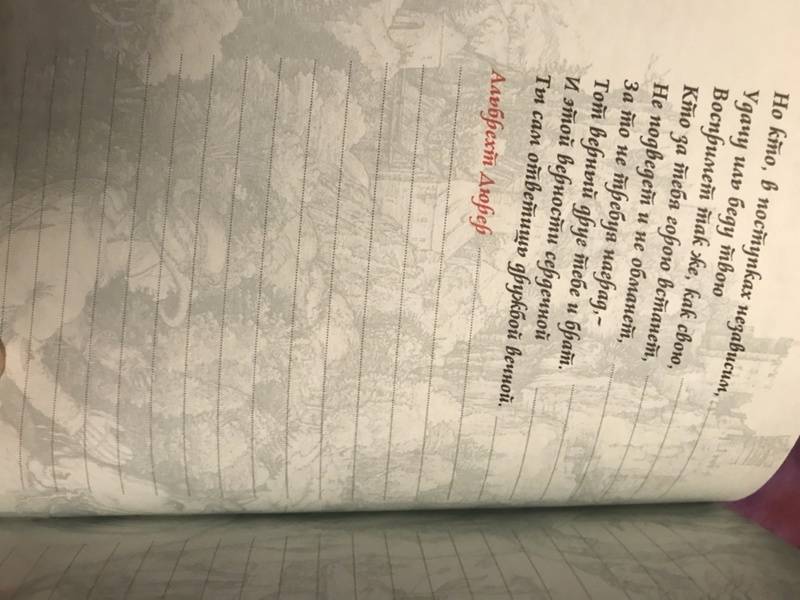 Но кто, в поступках независим,
Удачу иль беду твою
Воспримет так же, как свою,
Кто за тебя горою встанет,
Не подведет и не обманет,
За то не требуя наград,-
Тот верный друг тебе и брат.
И этой верности сердечной
Ты сам ответишь дружбой вечной.
Альбрехт Дюрер